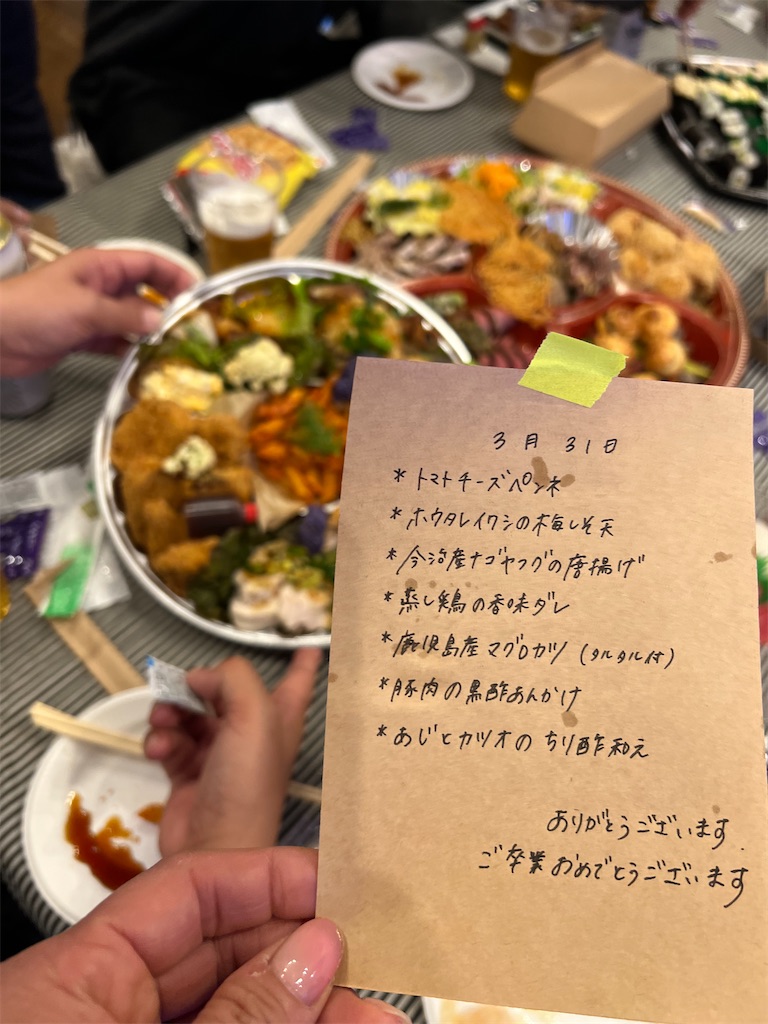 3月31日
* トマトチーズペンネ
* ホウタレイワシの梅しそ天
* 今治産ナゴヤフグの唐揚げ
* 蒸し鶏の香味ダレ
* 鹿児島産マグロカツ (タルタル付)
* 豚肉の黒酢あんかけ
* あじとカツオのちり酢和え
ありがとうございます
ご卒業おめでとうございます